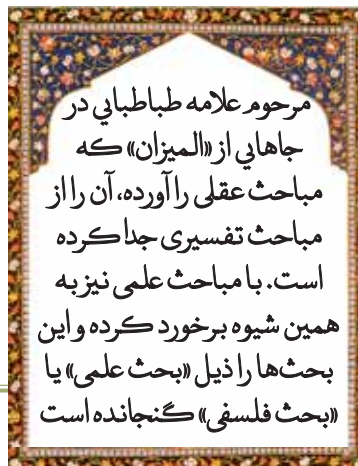 مرحوم علامه طباطبایي در
جاهایي از «المیزان» که
مباحث عقلی را آورده، آن را از
مباحث تفسیری جدا کرده
است. با مباحث علمی نیز به
همین شیوه برخورد کرده و این
بحث‌ها را ذیل «بحث علمی» یا
«بحث فلسفی» گنجانده است